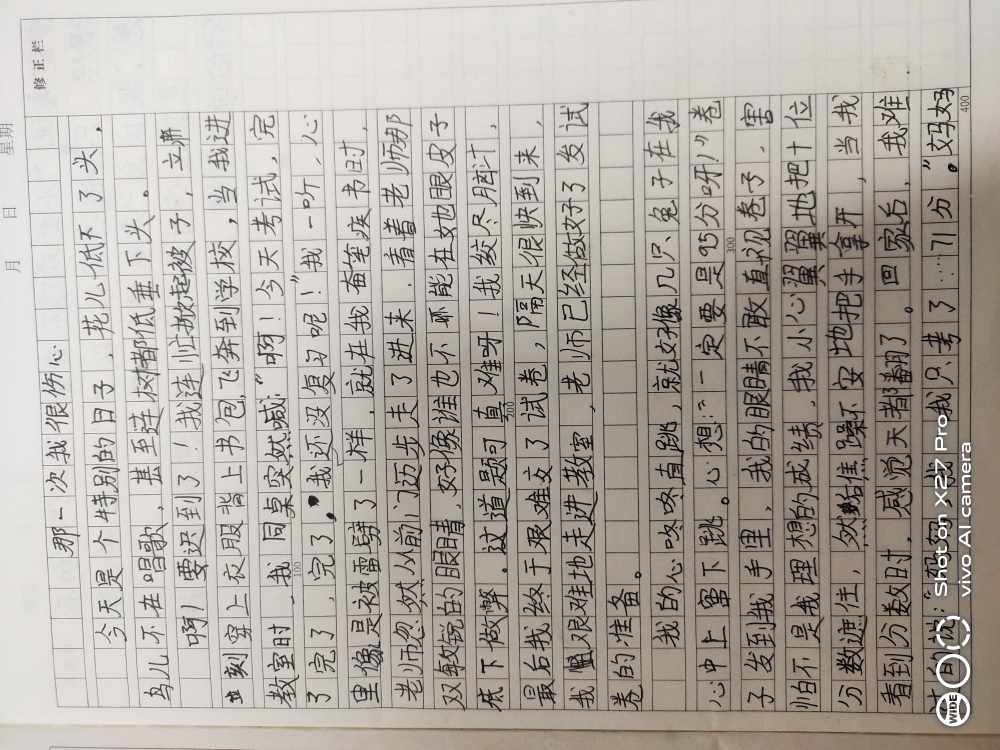 修正栏
月 日 星期
那一次我很伤心
今天是个特别的日子，花儿低下了头，
鸟儿不在唱歌，甚至连树都低垂下头。
啊！要迟到了！我连忙掀起被子，立刻
穿上衣服背上书包，飞奔到学校，当我进
教室时，我同桌突然喊：“啊！今天考试，完
了完了，完了。我还没复习呢！”我一听，心
里像是被雷劈了一样，就在我奋笔疾书时，
老师忽然从前门迈步走了进来，看着老师那
双敏锐的眼睛，好像谁也不可能在她眼皮子
底下做弊。这道题可真难呀！我绞尽脑汁，
最后我终于艰难交了试卷，隔天很快到来，
我艰难地走进教室，老师已经做好了发试
卷的准备。
我的心咚咚直跳，就好像几只兔子在我
心中上窜下跳。心想：“一定要是95分呀！”卷
子发到我手里，我的眼睛不敢直视卷子，害
怕不是我理想的成绩，我小心翼翼地把十位
分数遮住，然焦躁不安地把手拿开，当我
看到分数时，感觉天都翻了。回家后，我难
过的说：“妈妈，我只考了……71分。”妈妈
100
200
300
400
Shot on X27 Pro
vivo AI camera
WIDE